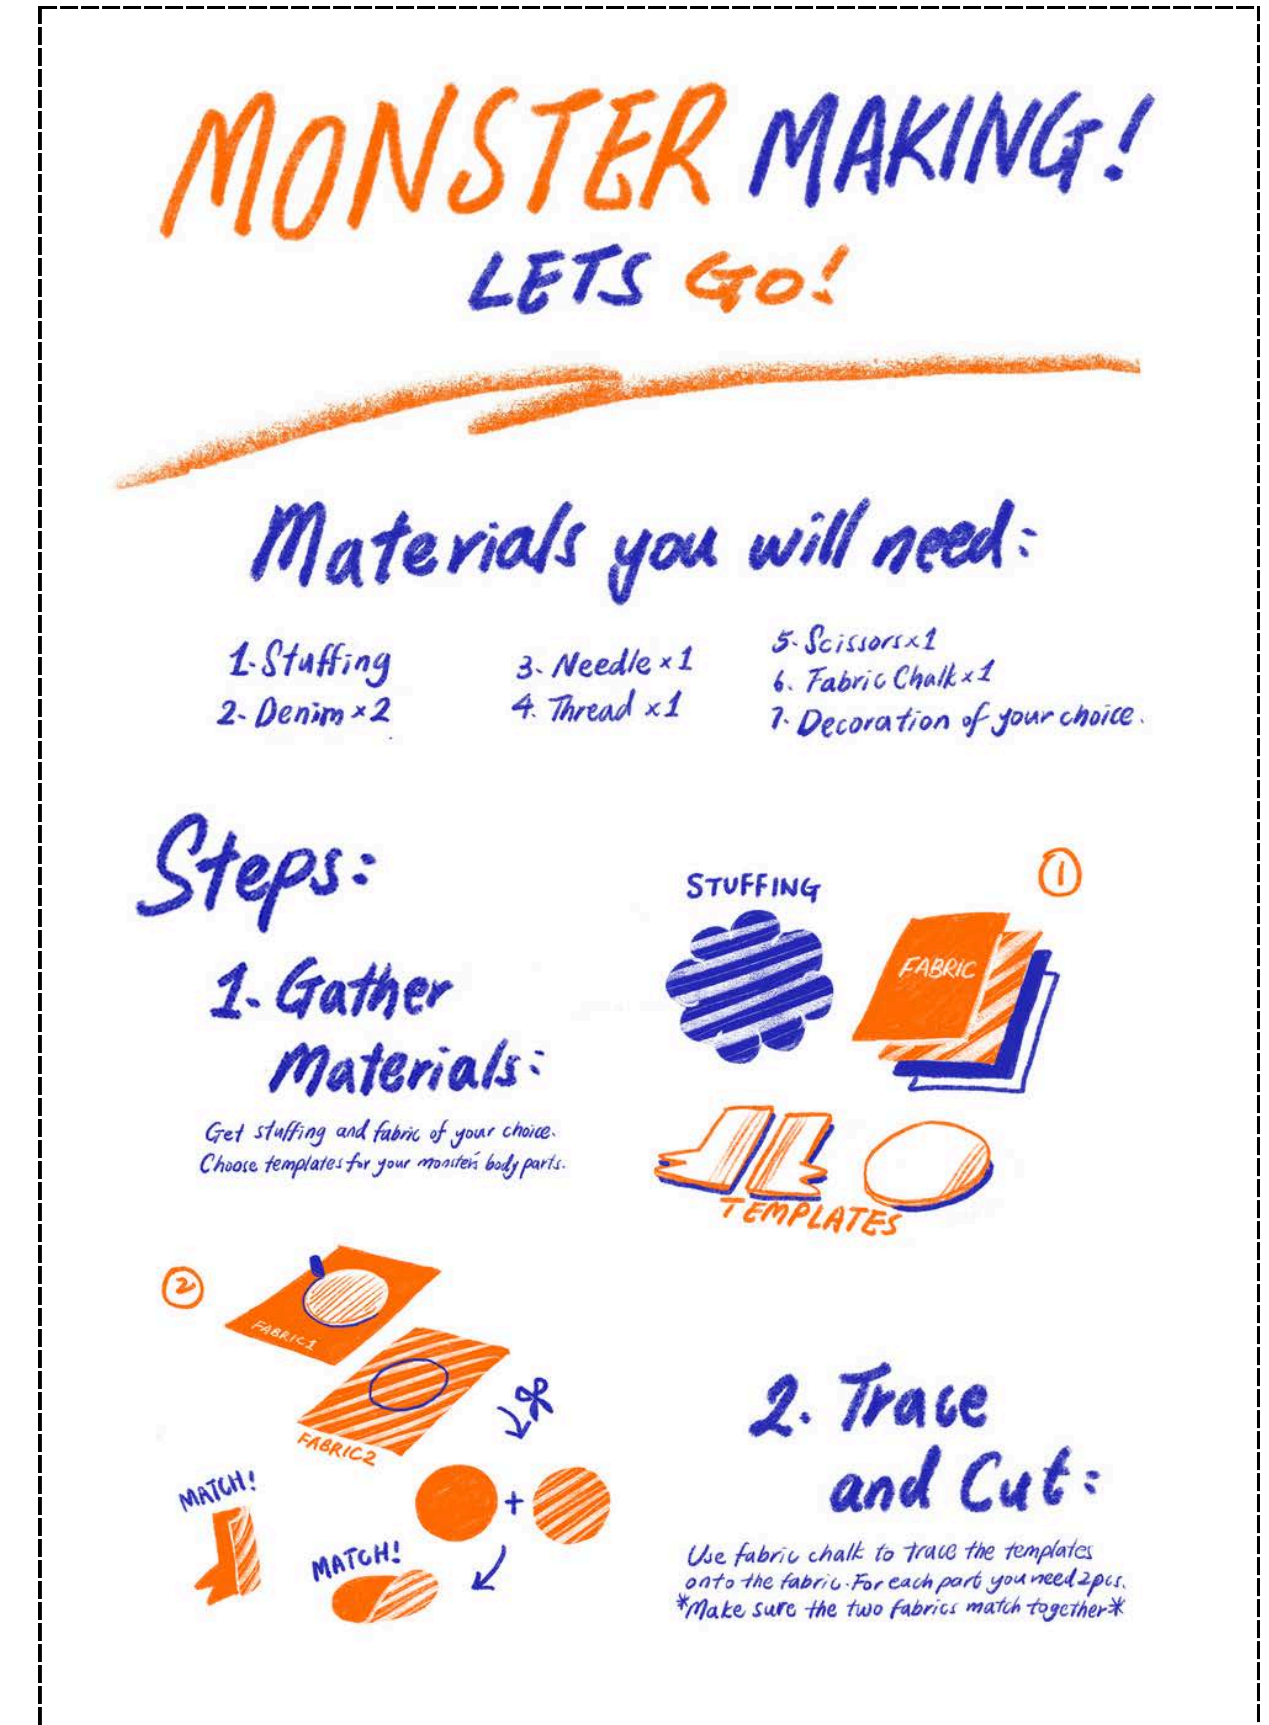 MONSTER MAKING!
LETS GO!
Materials you will need:
1. Stuffing
2. Denim x2
3. Needle x1
4. Thread x1
5. Scissors x1
6. Fabric Chalk x1
7. Decoration of your choice.
Steps:
1. Gather
Materials:
Get stuffing and fabric of your choice.
Choose templates for your monster's body parts.
STUFFING
1
FABRIC
TEMPLATES
2
FABRIC1
FABRIC2
MATCH!
+
MATCH!
2. Trace
and Cut:
Use fabric chalk to trace the templates
onto the fabric. For each part you need 2pcs.
*Make sure the two fabrics match together*